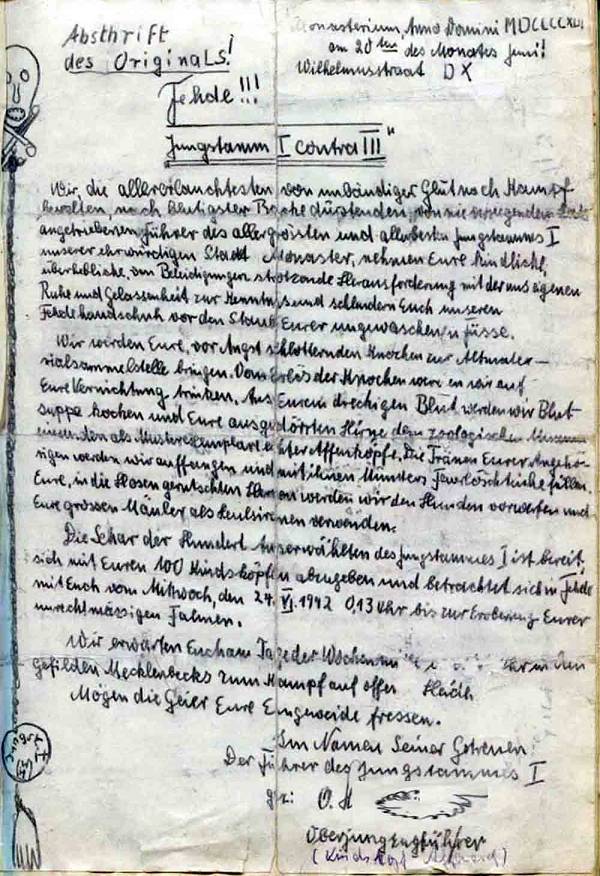 Abschrift
des Originals!
Monasterium, Anno Domini MDCCCCXLII
am 20ten des Monates Juni!
Wilhelmusstraat DX
Fehde!!!
Jungstamm I contra III"
Wir, die allererlauchtesten von unbändiger Glut nach Kampf
beseelten, nach blutigster Rache dürstenden, von nie versiegender
angetriebenen Führer des allergrössten und allerbesten Jungstammes I
unserer ehrwürdigen Stadt Monaster, nehmen Eure kindliche,
überhebliche, von Beleidigungen strotzende Herausforderung mit der uns eigenen
Ruhe und Gelassenheit zur Kenntnis und schleudern Euch unseren
Fehdehandschuh vor den Staub Eurer ungewaschenen Füsse.
Wir werden Eure, vor Angst schlotternden Knochen zur Altmater-
ialsammelstelle bringen. Vom Erlös der Knochen werden wir auf
Eure Vernichtung trinken. Aus Eurem dreckigen Blut werden wir Blut
suppe kochen und Eure ausgedörrten Hirne dem zoologischen Museum
einsenden als Musterexemplare echter Affenköpfe. Die Tränen Eurer Angehö-
rigen werden wir auffangen und mit ihnen Münsters Feuerlöschteiche füllen.
Eure, in die Hosen gerutschten Herzen werden wir den Hunden vorwerfen und
Eure grossen Mäuler als Heulsirenen verwenden.
Die Schar der Hundert Auserwählten des Jungstammes I ist bereit,
sich mit Euren 100 Kindsköpfen abzugeben und betrachtet sich in Fehde
mit Euch vom Mittwoch, den 24. VI. 1942 0,13 Uhr bis zur Eroberung Eurer
unrechtmässigen Fahnen.
Wir erwarten Euch am Tage der Wochen um Uhr in den
Gefilden Mecklenbecks zum Kampf auf offer Heide
Mögen die Geier Eure Eingeweide fressen.
Im Namen Seiner Getreuen
Der Führer des Jungstammes I
gz: O. H
Oberjungzugführer
(Kindskopf